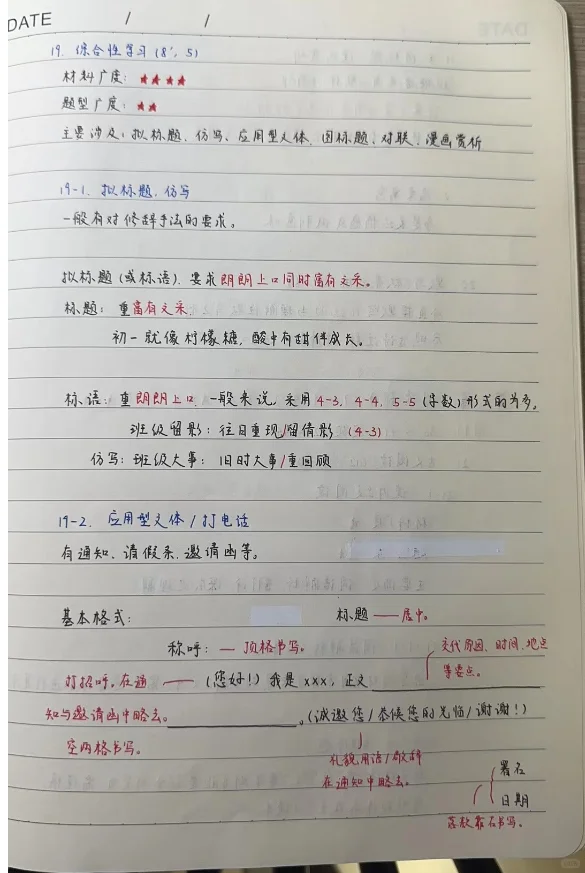 DATE / /
19. 综合性学习 (8', 5)
材料广度: ★★★★
题型广度: ★★
主要涉及: 拟标题、仿写、应用型文体、图标题、对联、漫画赏析
19-1. 拟标题、仿写
一般有对修辞手法的要求。
拟标题 (或标语). 要求朗朗上口同时富有文采。
标题: 重富有文采
初一就像柠檬糖, 酸中有甜伴成长。
标语: 重朗朗上口. 一般来说, 采用4-3, 4-4, 5-5 (字数) 形式的为多。
班级留影: 往日重现/留倩影 (4-3)
仿写: 班级大事: 旧时大事/重回顾
19-2. 应用型文体/打电话
有通知、请假条、邀请函等。
基本格式: 标题 — 居中。
称呼: — 顶格书写。
交代原因、时间、地点
等要点。
打招呼, 在通 — (您好!) 我是xxx, 正文
知与邀请函中略去。 。(诚邀您/恭候您的光临/谢谢!)
空两格书写。
礼貌用语/敬辞
在通知中略去。
署名
日期
落款靠右书写。